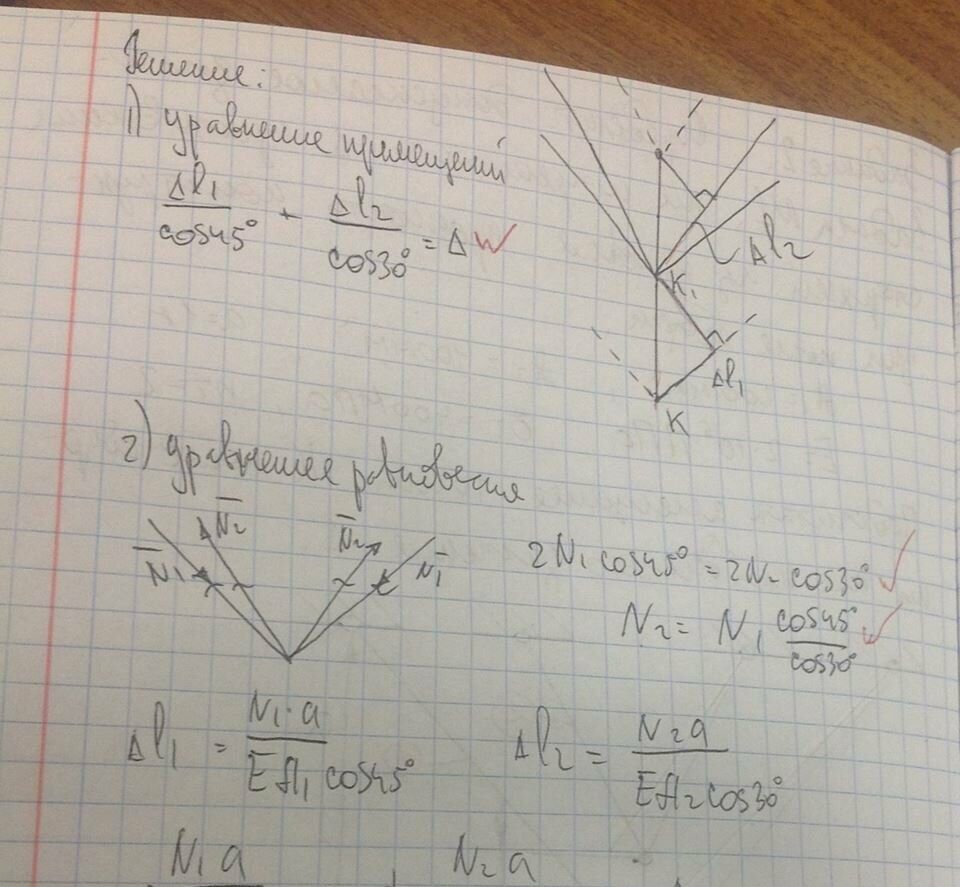 Решение:
1) уравнение примещений
Δl₁/cos45° + Δl₂/cos30° = Δ
Δl₂
K₁
Δl₁
K
2) уравнение равновесия
N̅₁ N̅₂ N̅₂ N̅₁
2N₁cos45° = 2N₂cos30°
N₂ = N₁ cos45°/cos30°
Δl₁ = N₁·a/EA₁cos45° Δl₂ = N₂a/EA₂cos30°
N₁a N₂a